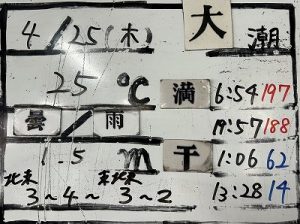 4/25(木) 大潮
25℃ 満 6:54 197
曇/雨 19:57 188
1.5m 干 1:06 62
北東 東北東
3~4~3~2 13:28 14